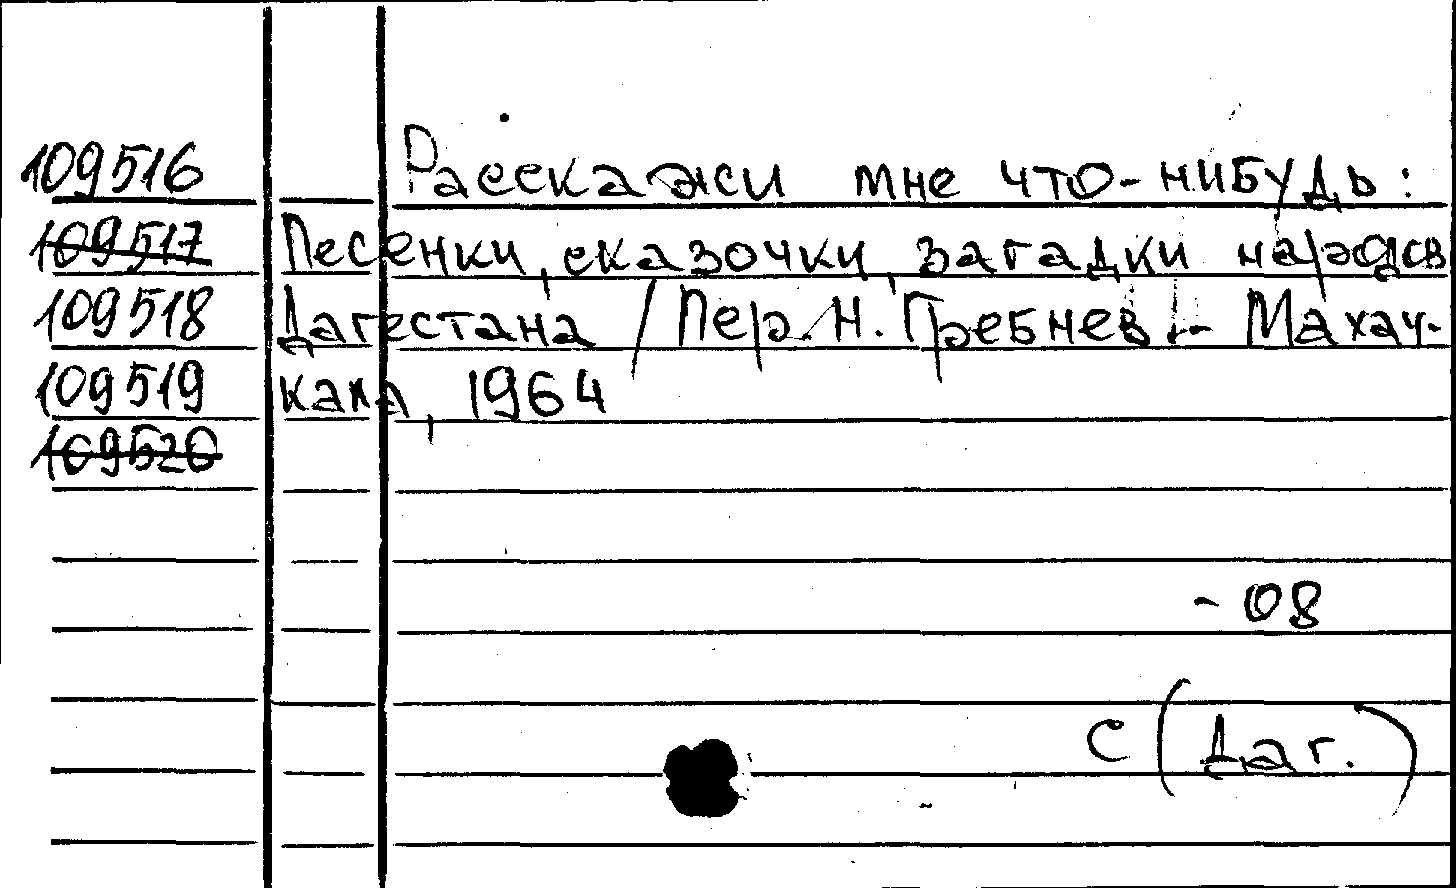 109516 Расскажи мне что-нибудь:
109517 Песенки, сказочки, загадки народов
109518 Дагестана / Пер. Н. Гребнев. - Махач-
109519 кала, 1964
109520
- 08
С (Даг.)